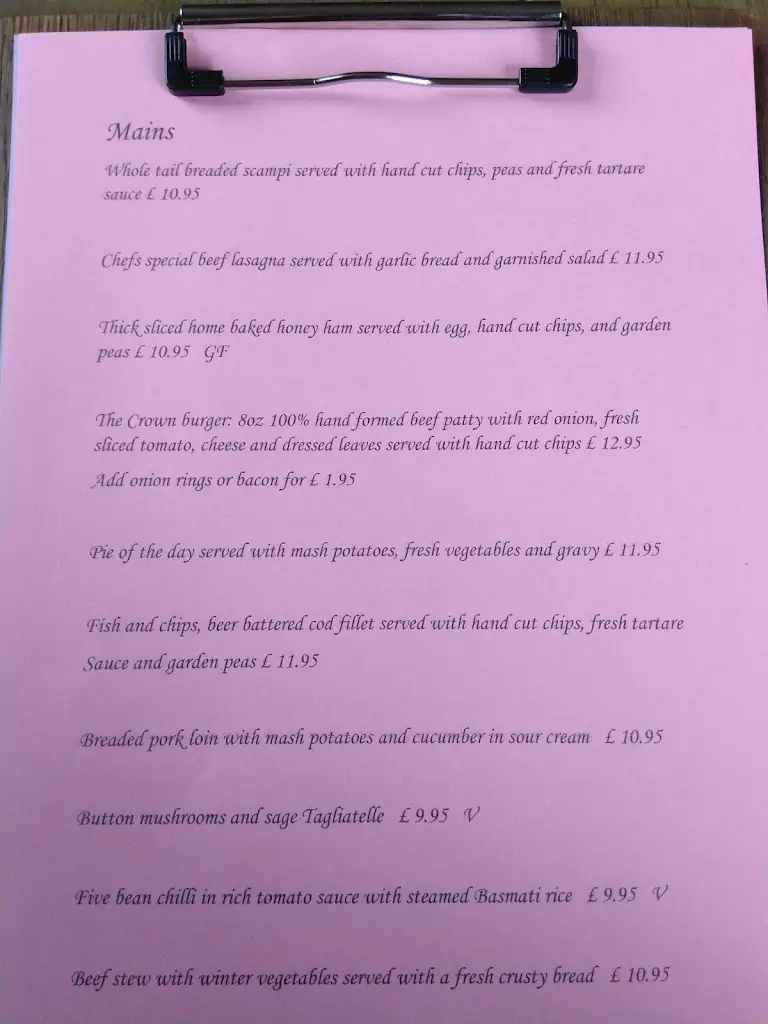 Mains
Whole tail breaded scampi served with hand cut chips, peas and fresh tartare
sauce £ 10.95
Chefs special beef lasagna served with garlic bread and garnished salad £ 11.95
Thick sliced home baked honey ham served with egg, hand cut chips, and garden
peas £ 10.95 GF
The Crown burger: 8oz 100% hand formed beef patty with red onion, fresh
sliced tomato, cheese and dressed leaves served with hand cut chips £ 12.95
Add onion rings or bacon for £ 1.95
Pie of the day served with mash potatoes, fresh vegetables and gravy £ 11.95
Fish and chips, beer battered cod fillet served with hand cut chips, fresh tartare
Sauce and garden peas £ 11.95
Breaded pork loin with mash potatoes and cucumber in sour cream £ 10.95
Button mushrooms and sage Tagliatelle £ 9.95 V
Five bean chilli in rich tomato sauce with steamed Basmati rice £ 9.95 V
Beef stew with winter vegetables served with a fresh crusty bread £ 10.95